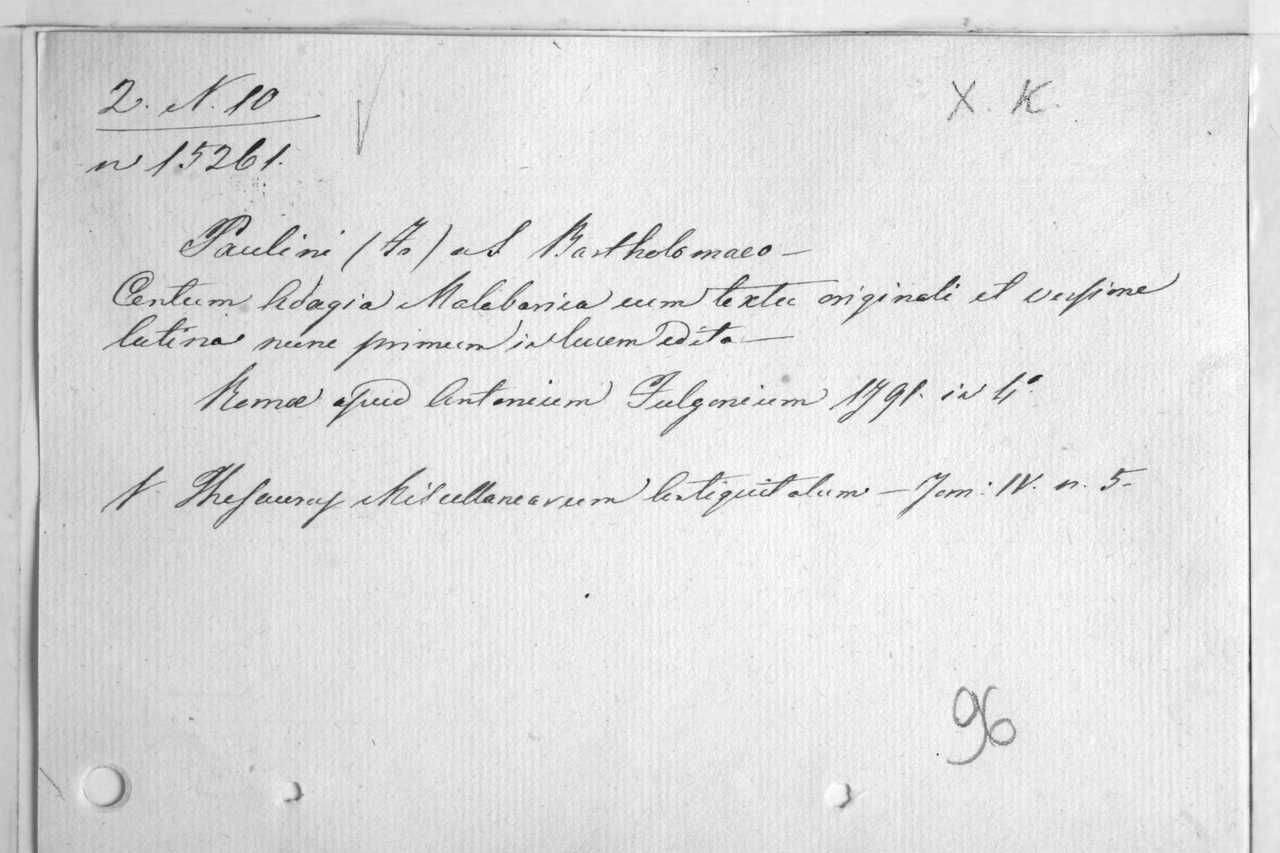 2. N. 10
X. K.
n 15261.
Paulini (Fr) a S Bartholomaeo —
Centum Adagia Malabarica cum textu originali et versione
latina nunc primum in lucem edita —
Romæ apud Antonium Fulgonium 1791. in 4.º
V. Thesaurus Miscellanearum Antiquitatum — Tom: IV. n. 5-
96